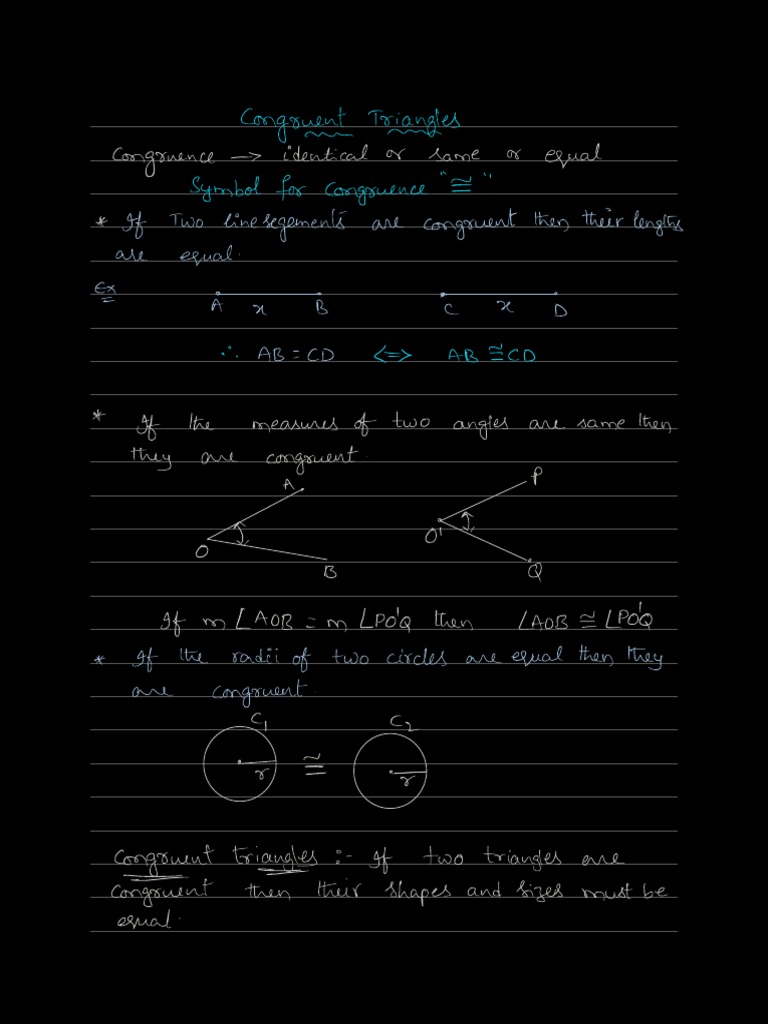 Congruent Triangles
Congruence → identical or same or equal
Symbol for Congruence "≅"
* If Two line segements are congruent then their lengths
are equal.
Ex
A x B C x D
∴ AB = CD <=> AB ≅ CD
* If the measures of two angles are same then
they are congruent.
A P
O O'
B Q
If m∠AOB = m∠PO'Q then ∠AOB ≅ ∠PO'Q
* If the radii of two circles are equal then they
are congruent.
C1 C2
r ≅ r
Congruent triangles :- If two triangles are
congruent then their shapes and sizes must be
equal.